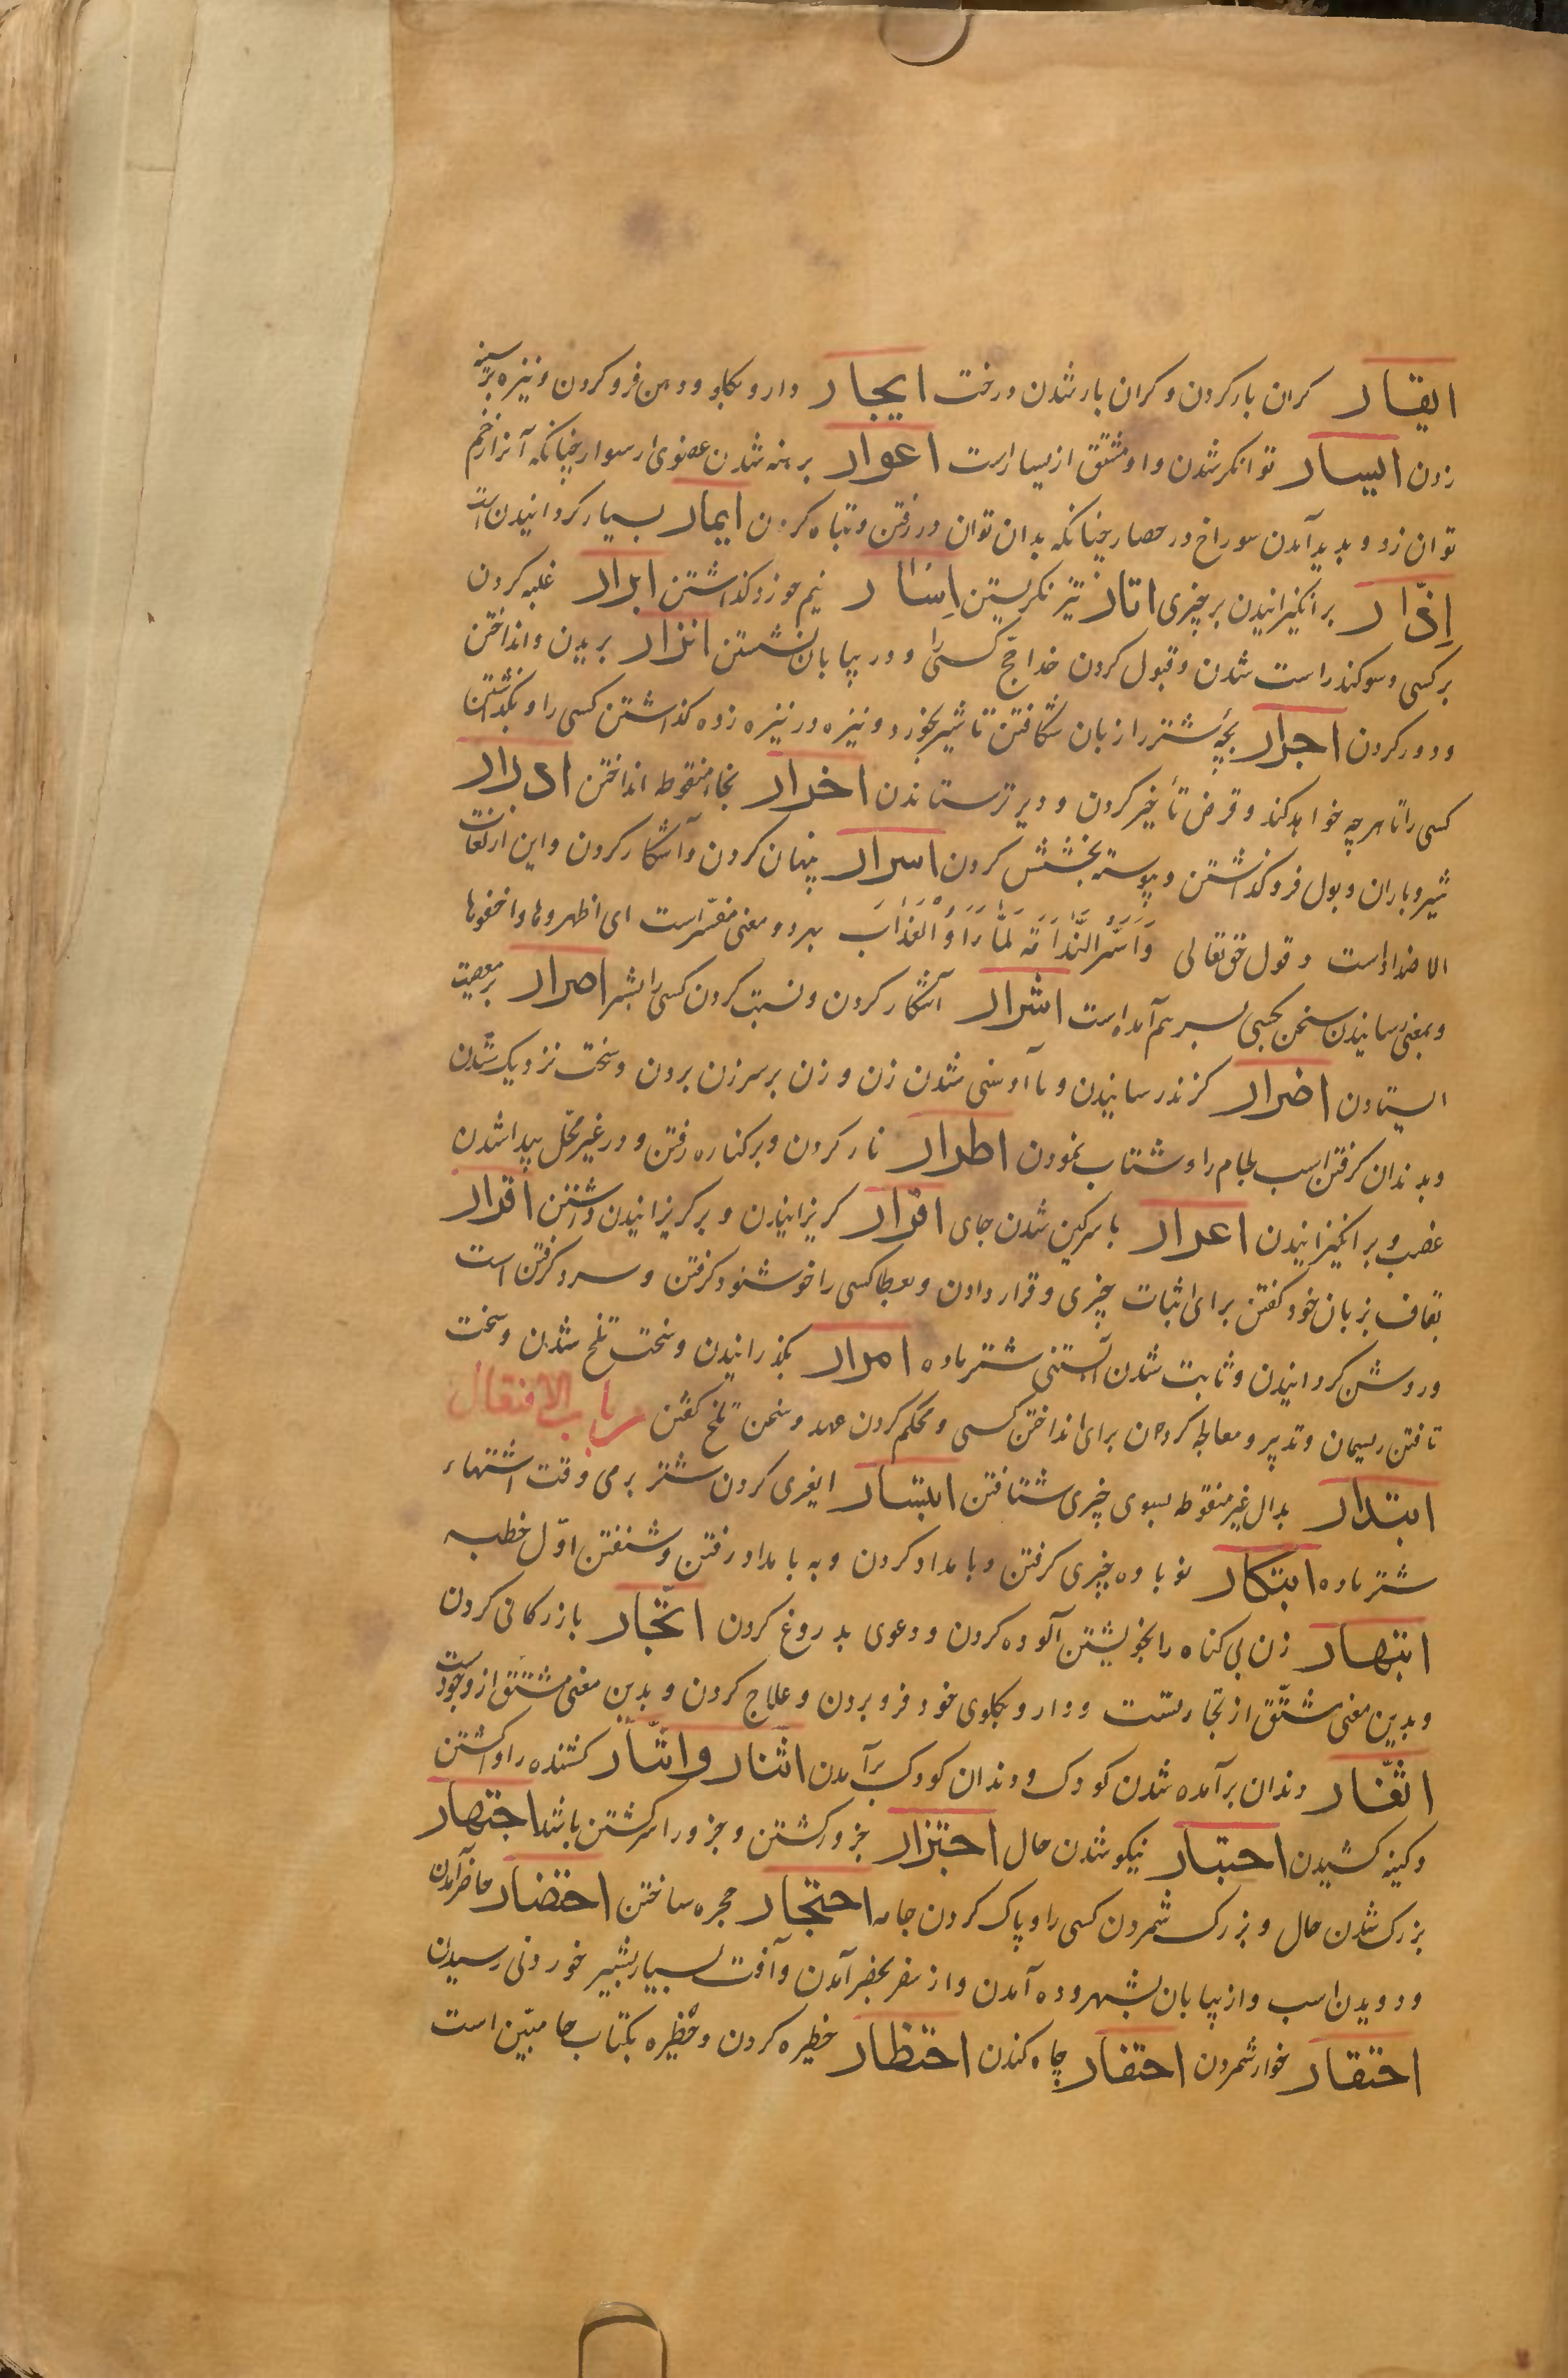 ایقار کران بار کردن و کران بار شدن درخت ایجار دارو بکلو و دهن فرو کردن و نیزه بر سینه
زدن ایسار توانکر شدن و او مشتق از یسار است اعوار برهنه شدن عضوی از سوار چنانکه آنرا زخم
توان زد و پدید آمدن سوراخ در حصار چنانکه بدان توان در رفتن و تباه کردن ایمار بسیار کردانیدن است
اذآر برانکیزانیدن بر چیزی اتار تیز نکریستن اسار نیم خورد کذاشتن ابرار غلبه کردن
بر کسی و سوکند راست شدن و قبول کردن خدا حج کسی را و در بیابان نشستن انزار بریدن و انداختن
و دور کردن اجرار بچهٔ شتر را زبان شکافتن تا شیر نخورد و نیزه در نیزه زده کذاشتن کسی را و بکذاشتن
کسی را تا هرچه خواهد کند و قرض تأخیر کردن و دیرتر ستاندن اخرار بخاء منقوطه انداختن ادرار
شیر و باران و بول فرو کذاشتن و پیوسته بخشش کردن اسرار پنهان کردن و آشکار کردن و این از لغات
الاضداد است و قول حق تعالی وَاَسَرُّ النَّدَامَةَ لَمَّا رَاَوُ الْعَذَابَ بهر دو معنی مفسّر است ای اظهروها و اخفوها
و بمعنی رسانیدن سخن بکسی بسر هم آمده است اشرار آشکار کردن و نسبت کردن کسی را بشر اصرار بر معصیت
ایستادن اضرار کزند رسانیدن و با آوسنی شدن زن و زن بر سر زن بردن و سخت نزدیک شدن
و بدندان کرفتن اسب لجام را و شتاب نمودن اطرار ناز کردن و بر کناره رفتن و در غیر محل پیدا شدن
غضب و برانکیزانیدن اعرار با سرکین شدن جای افرار کریزانیدن و بر کریزانیدن داشتن اقرار
بقاف بزبان خود کفتن برای اثبات چیزی و قرار دادن و بعطا کسی را خوشنود کرفتن و سرد کرفتن است
و روشن کردانیدن و ثابت شدن آبستنی شتر ماده امرار بکذرانیدن و سخت تلخ شدن و سخت
تافتن ریسمان و تدبیر و معالجه کردن برای انداختن کسی و محکم کردن عهد و سخن تلخ کفتن باب الافتعال
ابتدار بدال غیر منقوطه بسوی چیزی شتافتن ابتسار ایغری کردن شتر بر می وقت اشتهاء
شتر ماده ابتکار نوباوه چیزی کرفتن و بامداد کردن و به بامداد رفتن و شنفتن اوّل خطبه
ابتهار زن بی کناه را بخویشتن آلوده کردن و دعوی بدروغ کردن اتّجار بازرکانی کردن
و بدین معنی مشتّق از تجارتست و دارو بکلوی خود فرو بردن و علاج کردن و بدین معنی مشتّق از وجور است
اثّغار دندان برآمده شدن کودک و دندان کودک برآمدن اثنار و اثّآر کشنده را واکشتن
و کینه کشیدن احتبار نیکو شدن حال اجتزار جزور کشتن و جزور را سر کشتن باشد اجتهار
بزرک شدن حال و بزرک شمردن کسی را و پاک کردن جامه احتجار حجره ساختن احتضار حاضر آمدن
و دویدن اسب و از بیابان بشهر و ده آمدن و از سفر بحضر آمدن و آفت بسیار بشیر خوردنی رسیدن
احتقار خوار شمردن احتفار چاه کندن احتظار خطیره کردن و خطیره بکتاب حا مبیّن است